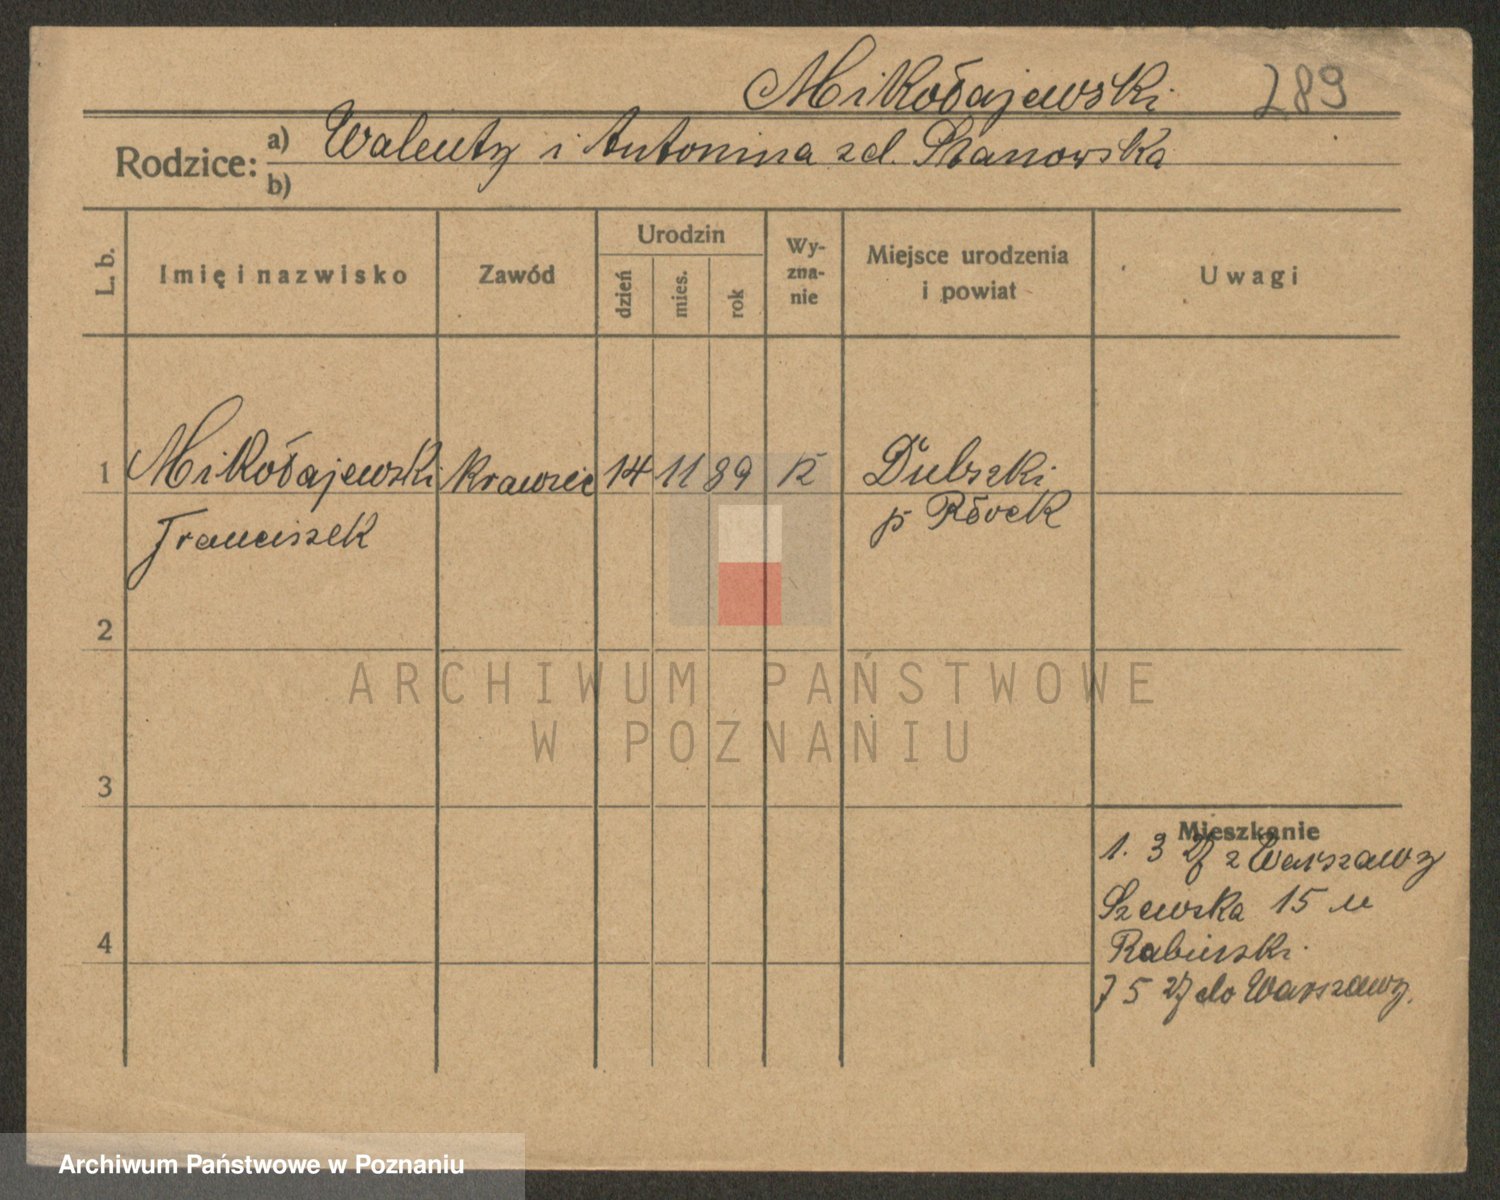 Mikołajewski 289
Rodzice: a) Walenty i Antonina zd. Szanowska
b)
L. b. Imię i nazwisko Zawód Urodzin dzień mies. rok Wyznanie Miejsce urodzenia i powiat Uwagi
1 Mikołajewski krawiec 14 11 89 K Dulszki
Franciszek p
2
3
Mieszkanie
1. 3 27 z Warszawy
Szewska 15 u
4 Rabierski
7 5 27 do Warszawy.
ARCHIWUM PAŃSTWOWE
W POZNANIU
Archiwum Państwowe w Poznaniu